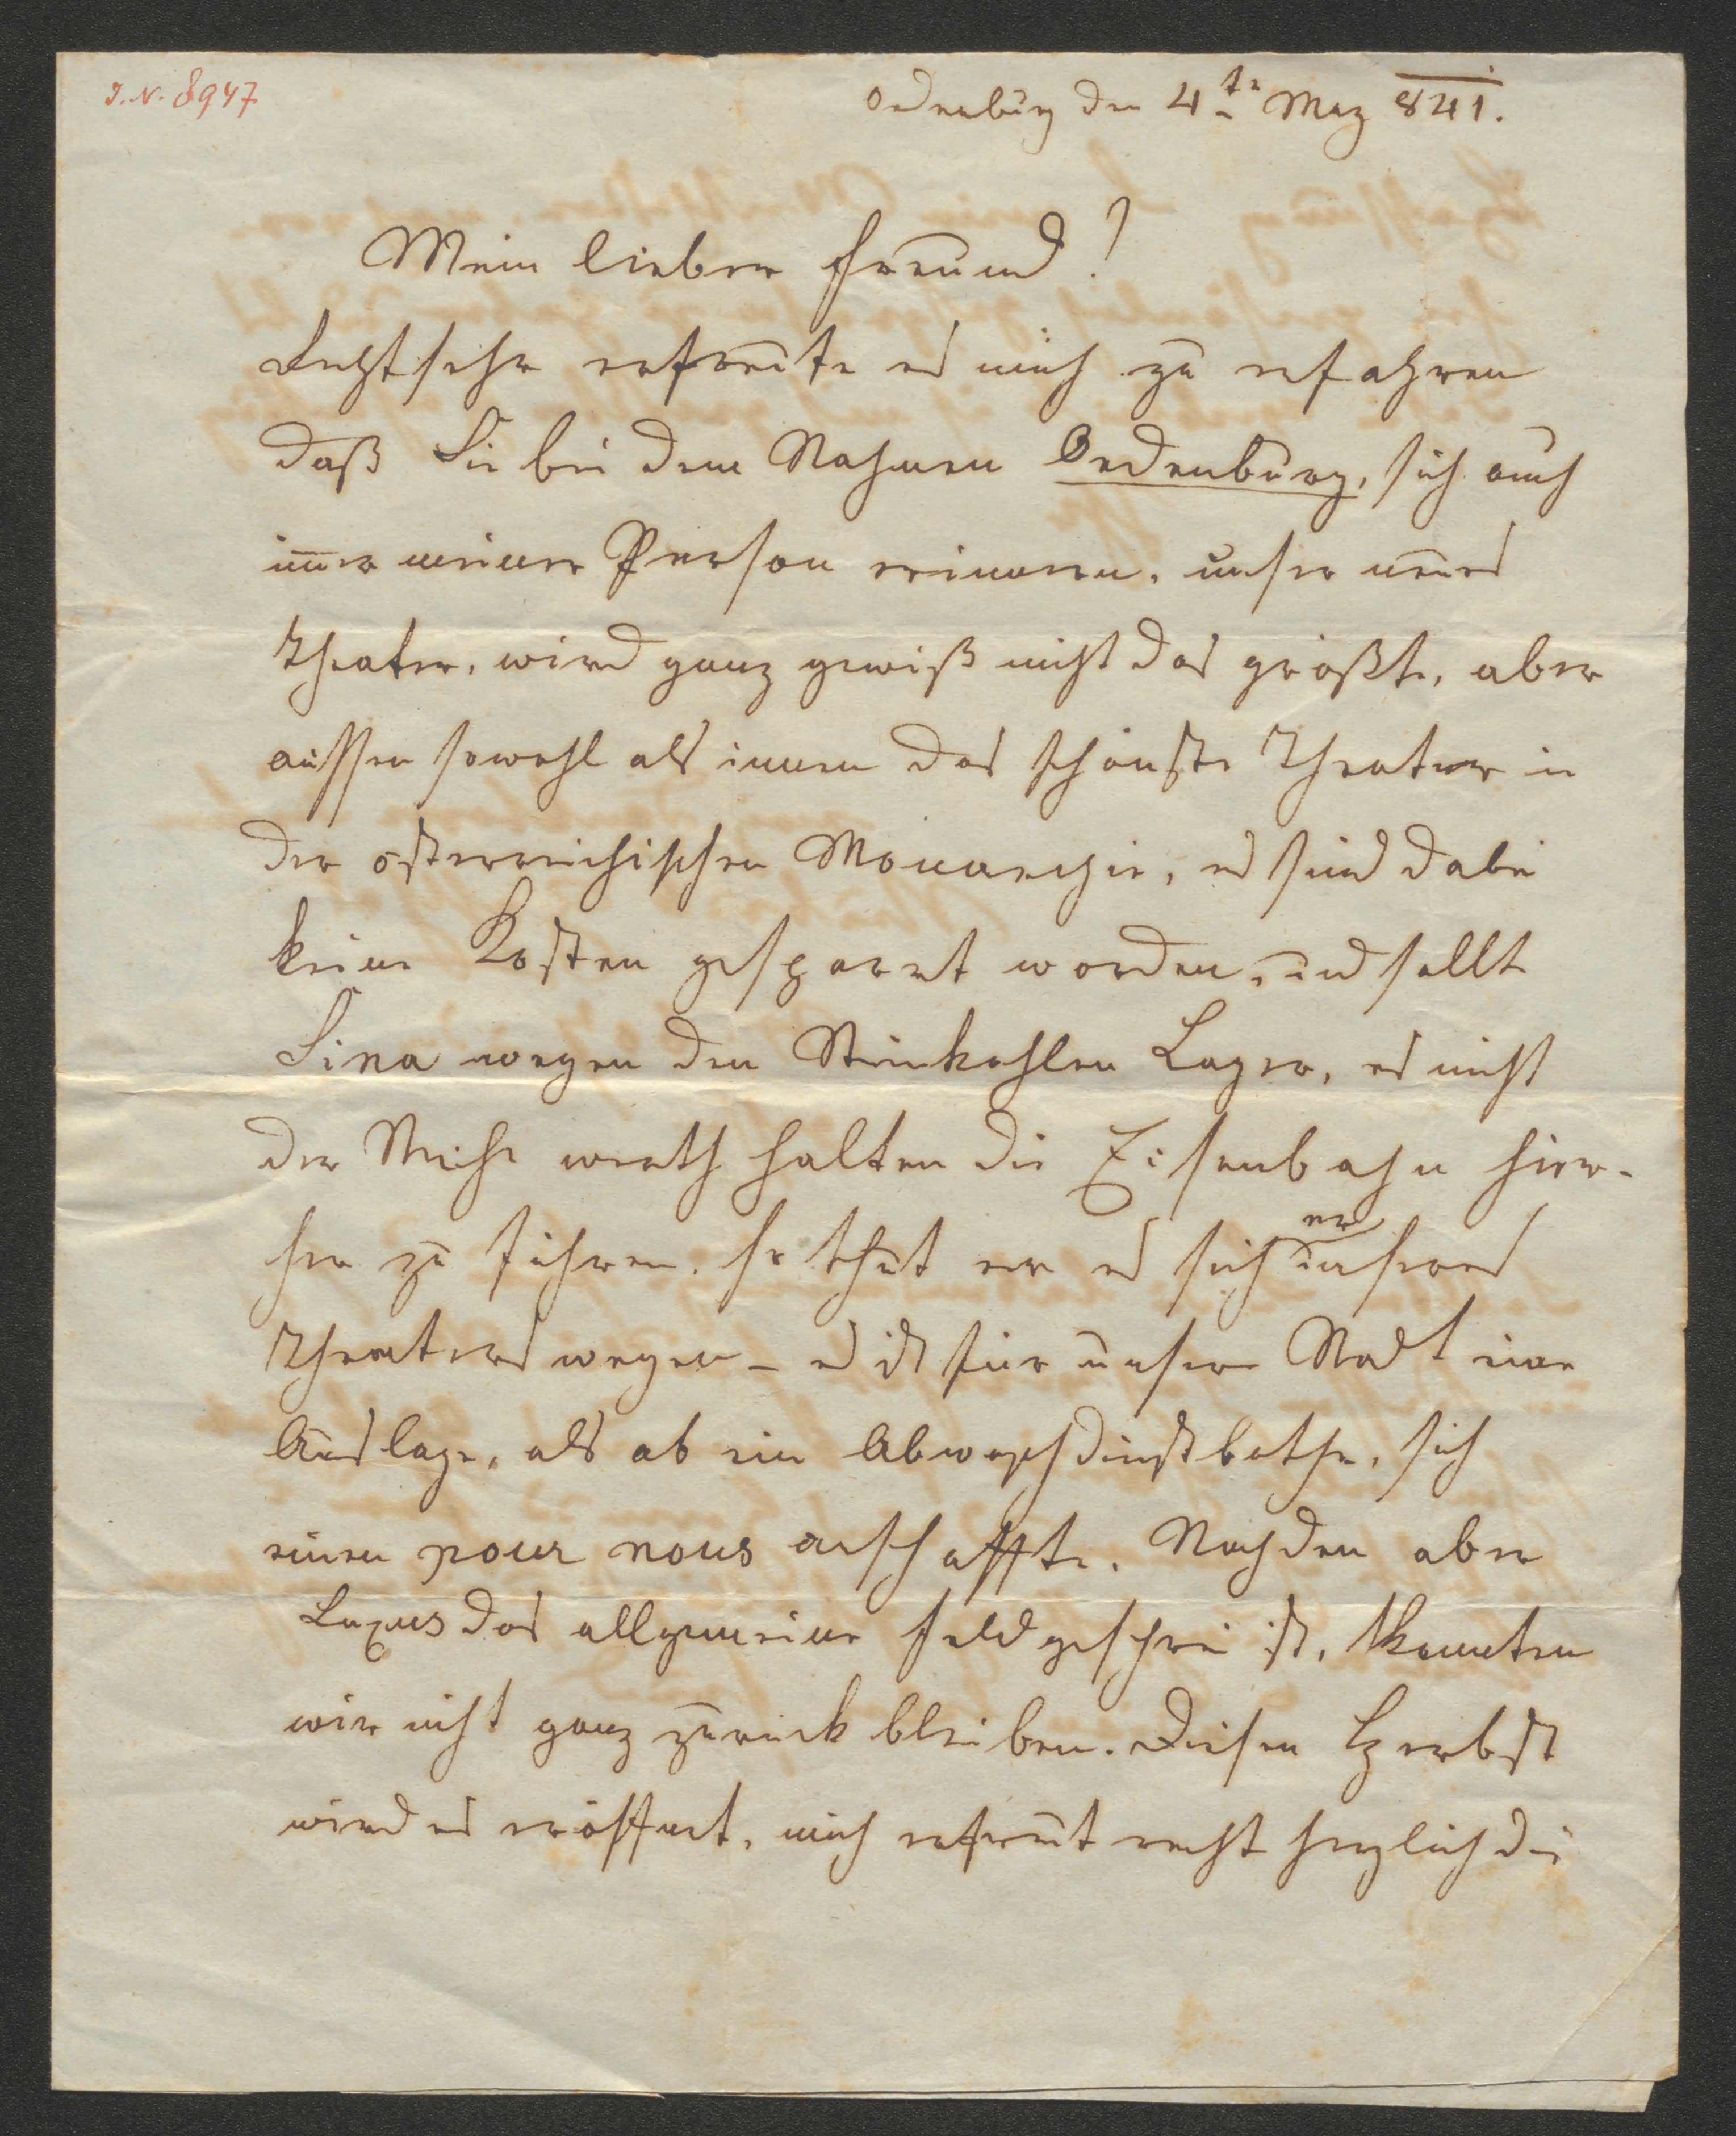 I. N. 8947
Oedenburg den 4te Merz 841.
Mein lieber Freund!
Rechtsehr erfreute es mich zu erfahren
daß Sie bei dem Nahmen Oedenburg, sich auch
im̄er meiner Person erinnern. unser neues
Theater, wird ganz gewiß nicht das größte, aber
aussen sowohl als innen das schönste Theater in
der österreichischen Monarchie, es sind dabei
keine Kosten gesparrt worden, und sollte
Sina wegen den Steinkohlen Lager, es nicht
der Mühe werth halten die Eisenbahn hier-
her zu führen. so thut er es sicher unseres
Theaters wegen – es ist für unsere Stadt eine
Auslage, als ob ein Abwaschdienstbothe, sich
einen pour nous anschaffte. Nachdem aber
Luxus das allgemeine Feldgeschrei ist, konnten
wir nicht ganz zurück bleiben. Diesen Herbst
wird es eröffnet, mich erfreut recht herzlich die